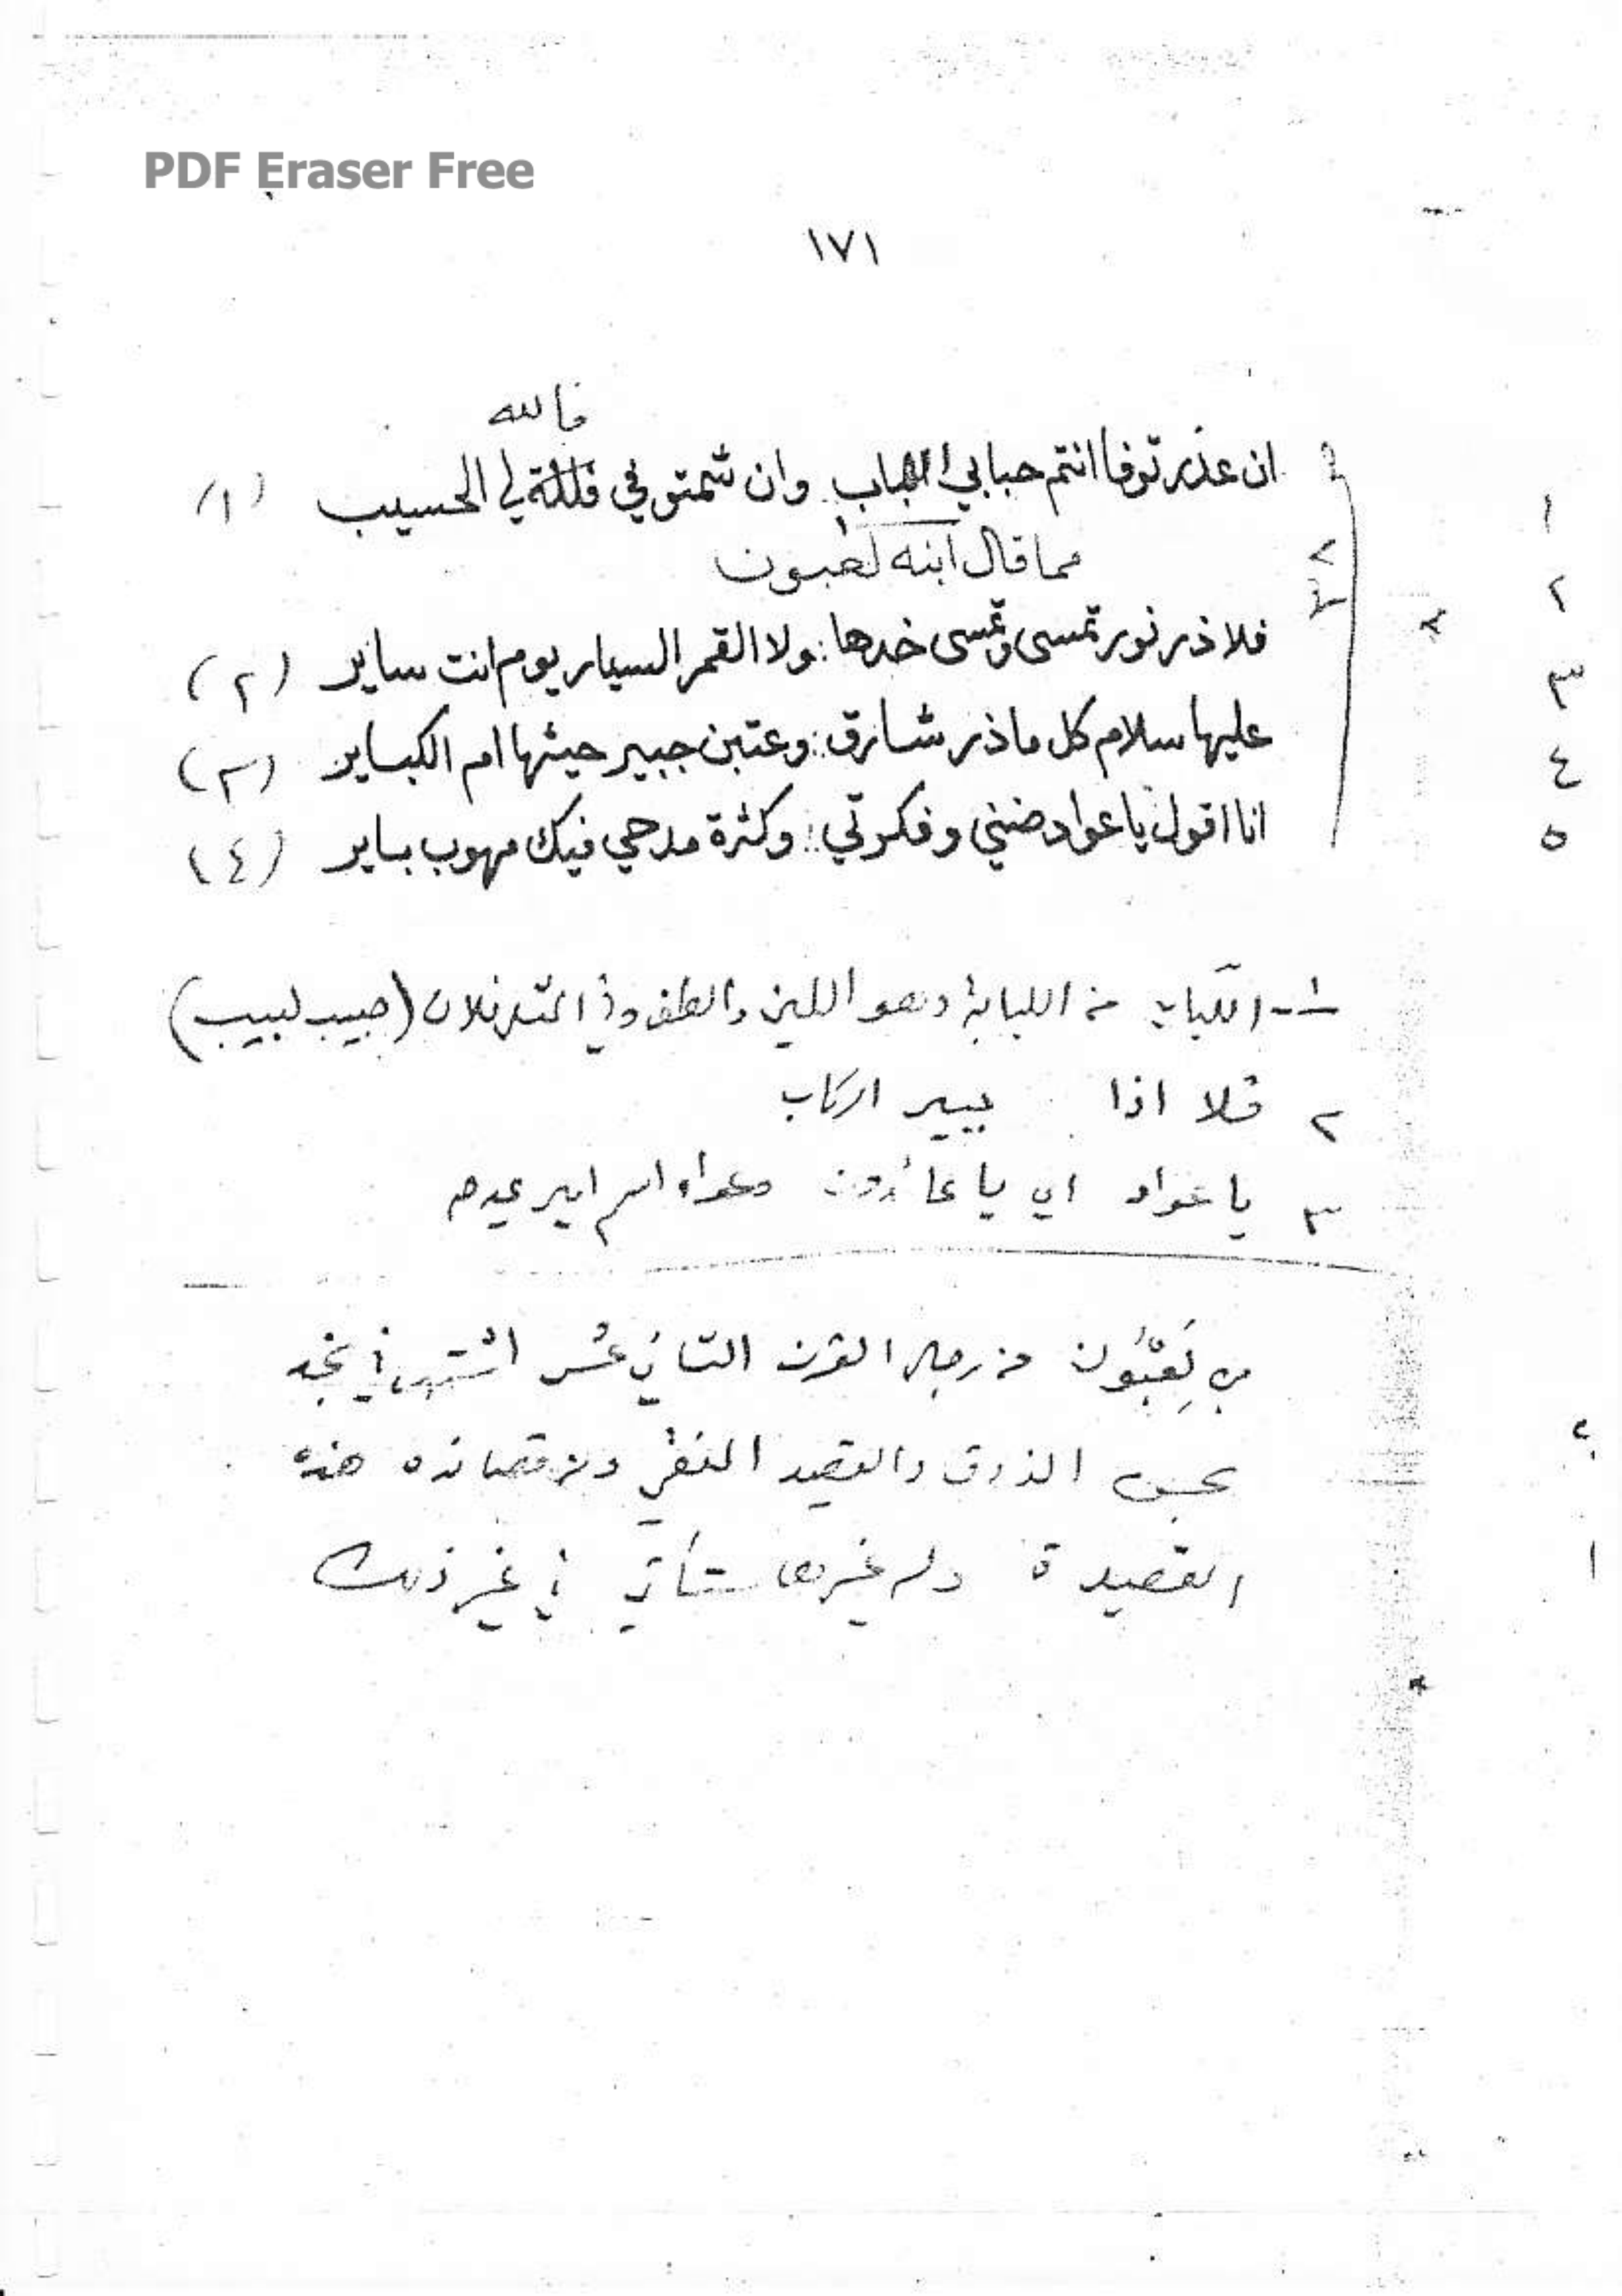 PDF Eraser Free
١٧١
فالله
ان عذرتوفا انتم حبابي اللباب وان شمتو في فللة لي الحسيب (١)
مما قال ابنه لعبون
فلا ذر نور تمسى وتمسى خدها : ولا القمر السيار يوم انت ساير (٢)
عليها سلام كل ما ذر شارق : وعتبن جبير حيثها ام الكباير (٣)
انا اقول يا عواد ضنني وفكرتي : وكثرة مدحي فيك مهوب باير (٤)
١ - اللباب من اللبابة وهو اللين والطف وفي المثل فلان (حبيب لبيب)
٢ فلا اذا جبير الركاب
٣ يا عواد اي يا عائدون وعواد اسم
بن لِعْبُون من رجال القرن الثاني عشر اشتهر في نجد
الذوق والقصيد ومن قصائده هذه
القصيدة وله غيرها ستأتي في غير ذلك
١
٢
٣
٤
٥